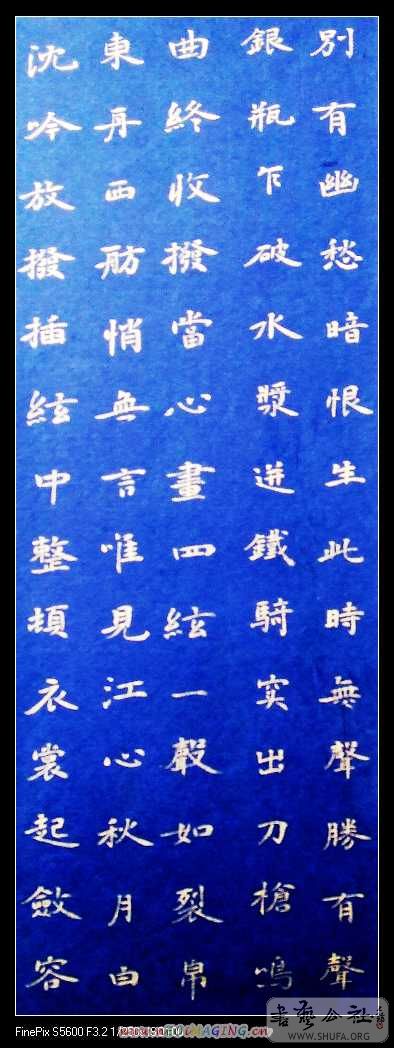 別有幽愁暗恨生此時無聲勝有聲
銀瓶乍破水漿迸鐵騎突出刀槍鳴
曲終收撥當心畫四絃一聲如裂帛
東舟西舫悄無言唯見江心秋月白
沈吟放撥插絃中整頓衣裳起斂容
書藝公社
WWW.SHUFA.ORG
FinePix S5600 F3.2